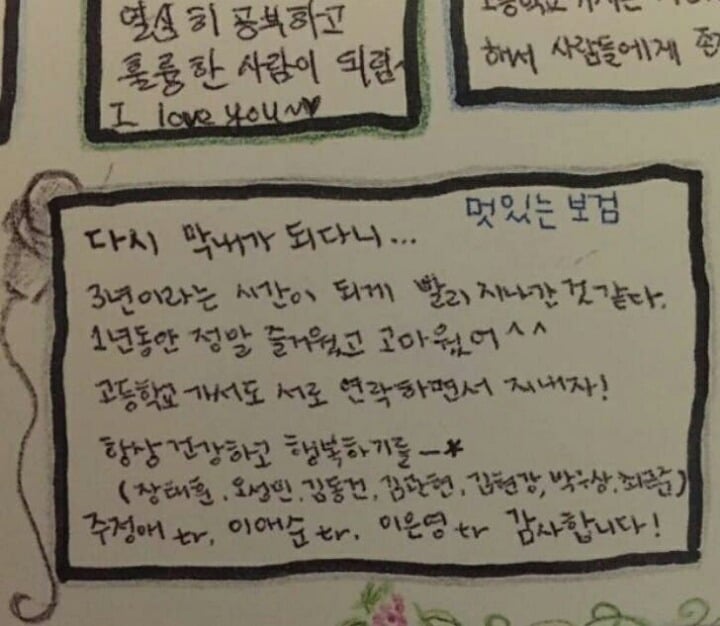 열심히 공부하고
훌륭한 사람이 되렴~
I love you~♥
해서 사람들에게 존
멋있는 보검
다시 막내가 되다니...
3년이라는 시간이 되게 빨리 지나간 것 같다.
1년동안 정말 즐거웠고 고마웠어^^
고등학교 가서도 서로 연락하면서 지내자!
항상 건강하고 행복하기를—*
(장태훈, 오성민, 김동건, 김관현, 김현강, 박우상,
주정애 tr, 이애순 tr, 이은영 tr 감사합니다!